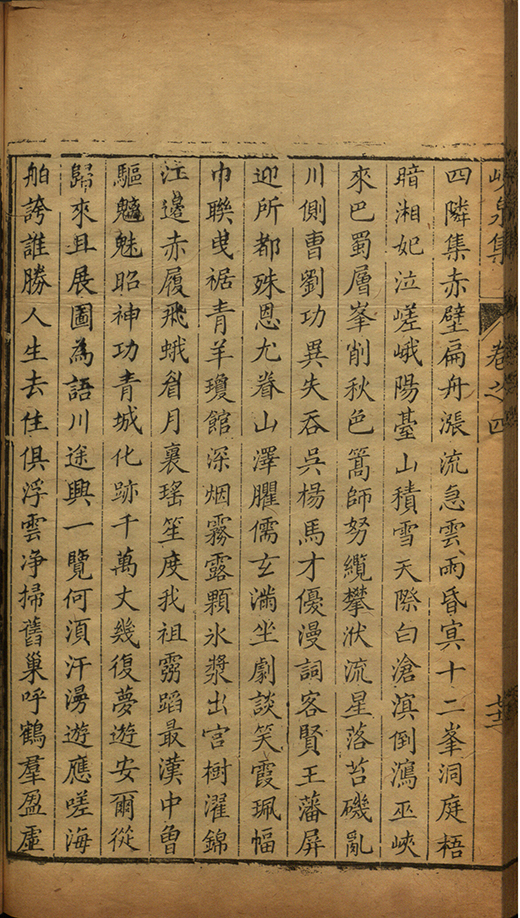 峴泉集
卷之四
四隣集赤壁扁舟漲流急雲雨昏冥十二峯洞庭梧
暗湘妃泣嵯峨陽臺山積雪天際白滄溟倒瀉巫峽
來巴蜀層峯削秋色篙師努纜攀洑流星落苔磯亂
川側曹劉功異失吞吳楊馬才優漫詞客賢王藩屏
迎所都殊恩尤眷山澤臞儒玄滿坐劇談笑霞珮幅
巾聯曳裾青羊瓊館深烟霧露顆氷漿出宮樹濯錦
江邊赤履飛蛾眉月襄瑤笙度我祖雰蹈最漢中曽
驅魑魅昭神功青城化跡千萬丈幾復夢遊安爾從
歸來且展圖為語川途興一覽何湏汗漫遊應嗟海
舶誇誰勝人生去住俱浮雲净掃舊巢呼鶴羣盈虛